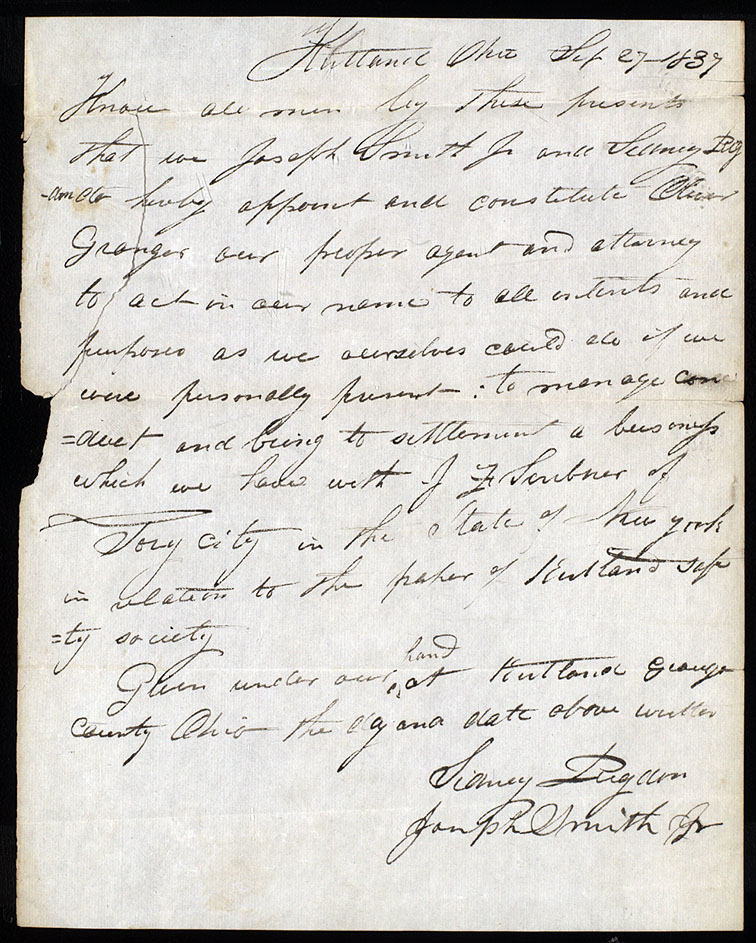 Kirtland Ohio Sep 27–1837
Know all men by these presents
that we Joseph Smith Jr and Sidney Rig
-don do hereby appoint and constitute Oliver
Granger our proper agent and attorney
to act in our name to all intents and
purposes as we ourselves could do if we
were personally present: to manage con
=duct and bring to settlement a business
which we have with J F Scribner of
Troy city in the State of New york
in relation to the paper of Kirtland safe
=ty society
Given under our hand at Kirtland Geauga
county Ohio the day and date above written
Sidney Rigdon
Joseph Smith Jr